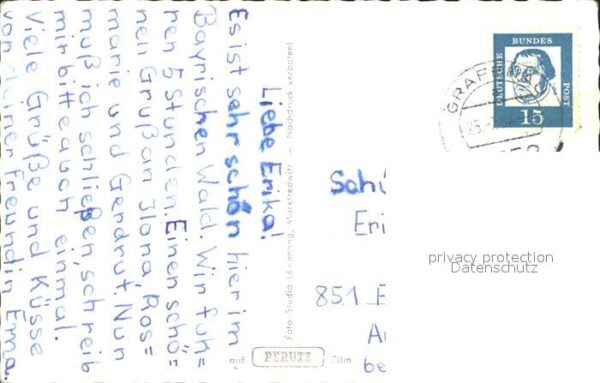 Liebe Erika!
Es ist sehr schön hier im
Bayrischen Wald. Wir fuh=
ren 5 Stunden. Einen schö=
nen Gruß an Ilona, Ros=
marie und Gerdrut. Nun
muß ich schließen, schreib
mir bitte auch einmal.
Viele Grüße und Küsse
von deiner Freundin Erma.
Foto Studio Marktredwitz – Nachdruck verboten!
auf PERUTZ Film
DEUTSCHE BUNDES POST
15
GRAF
25.
Schi
Eri
851 F
A
be
privacy protection
Datenschutz